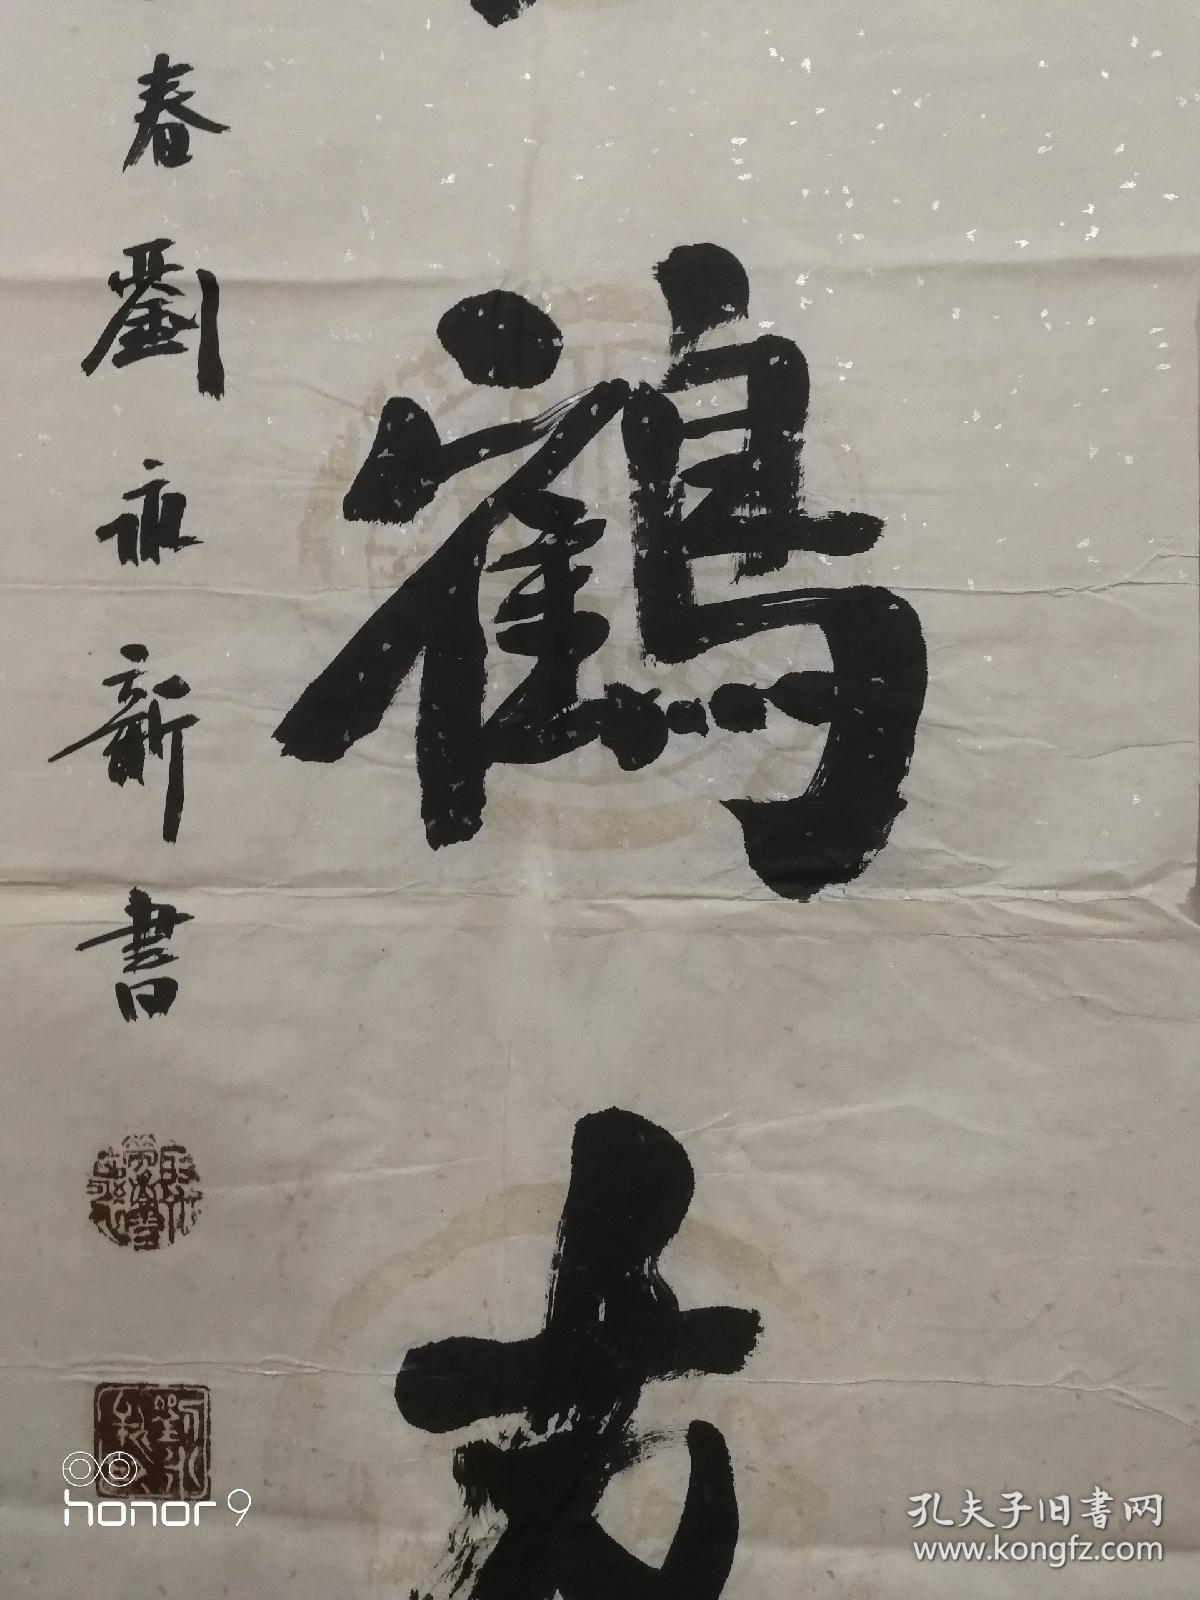 鶴
春劉永新書
honor 9
孔夫子旧书网
www.kongfz.com